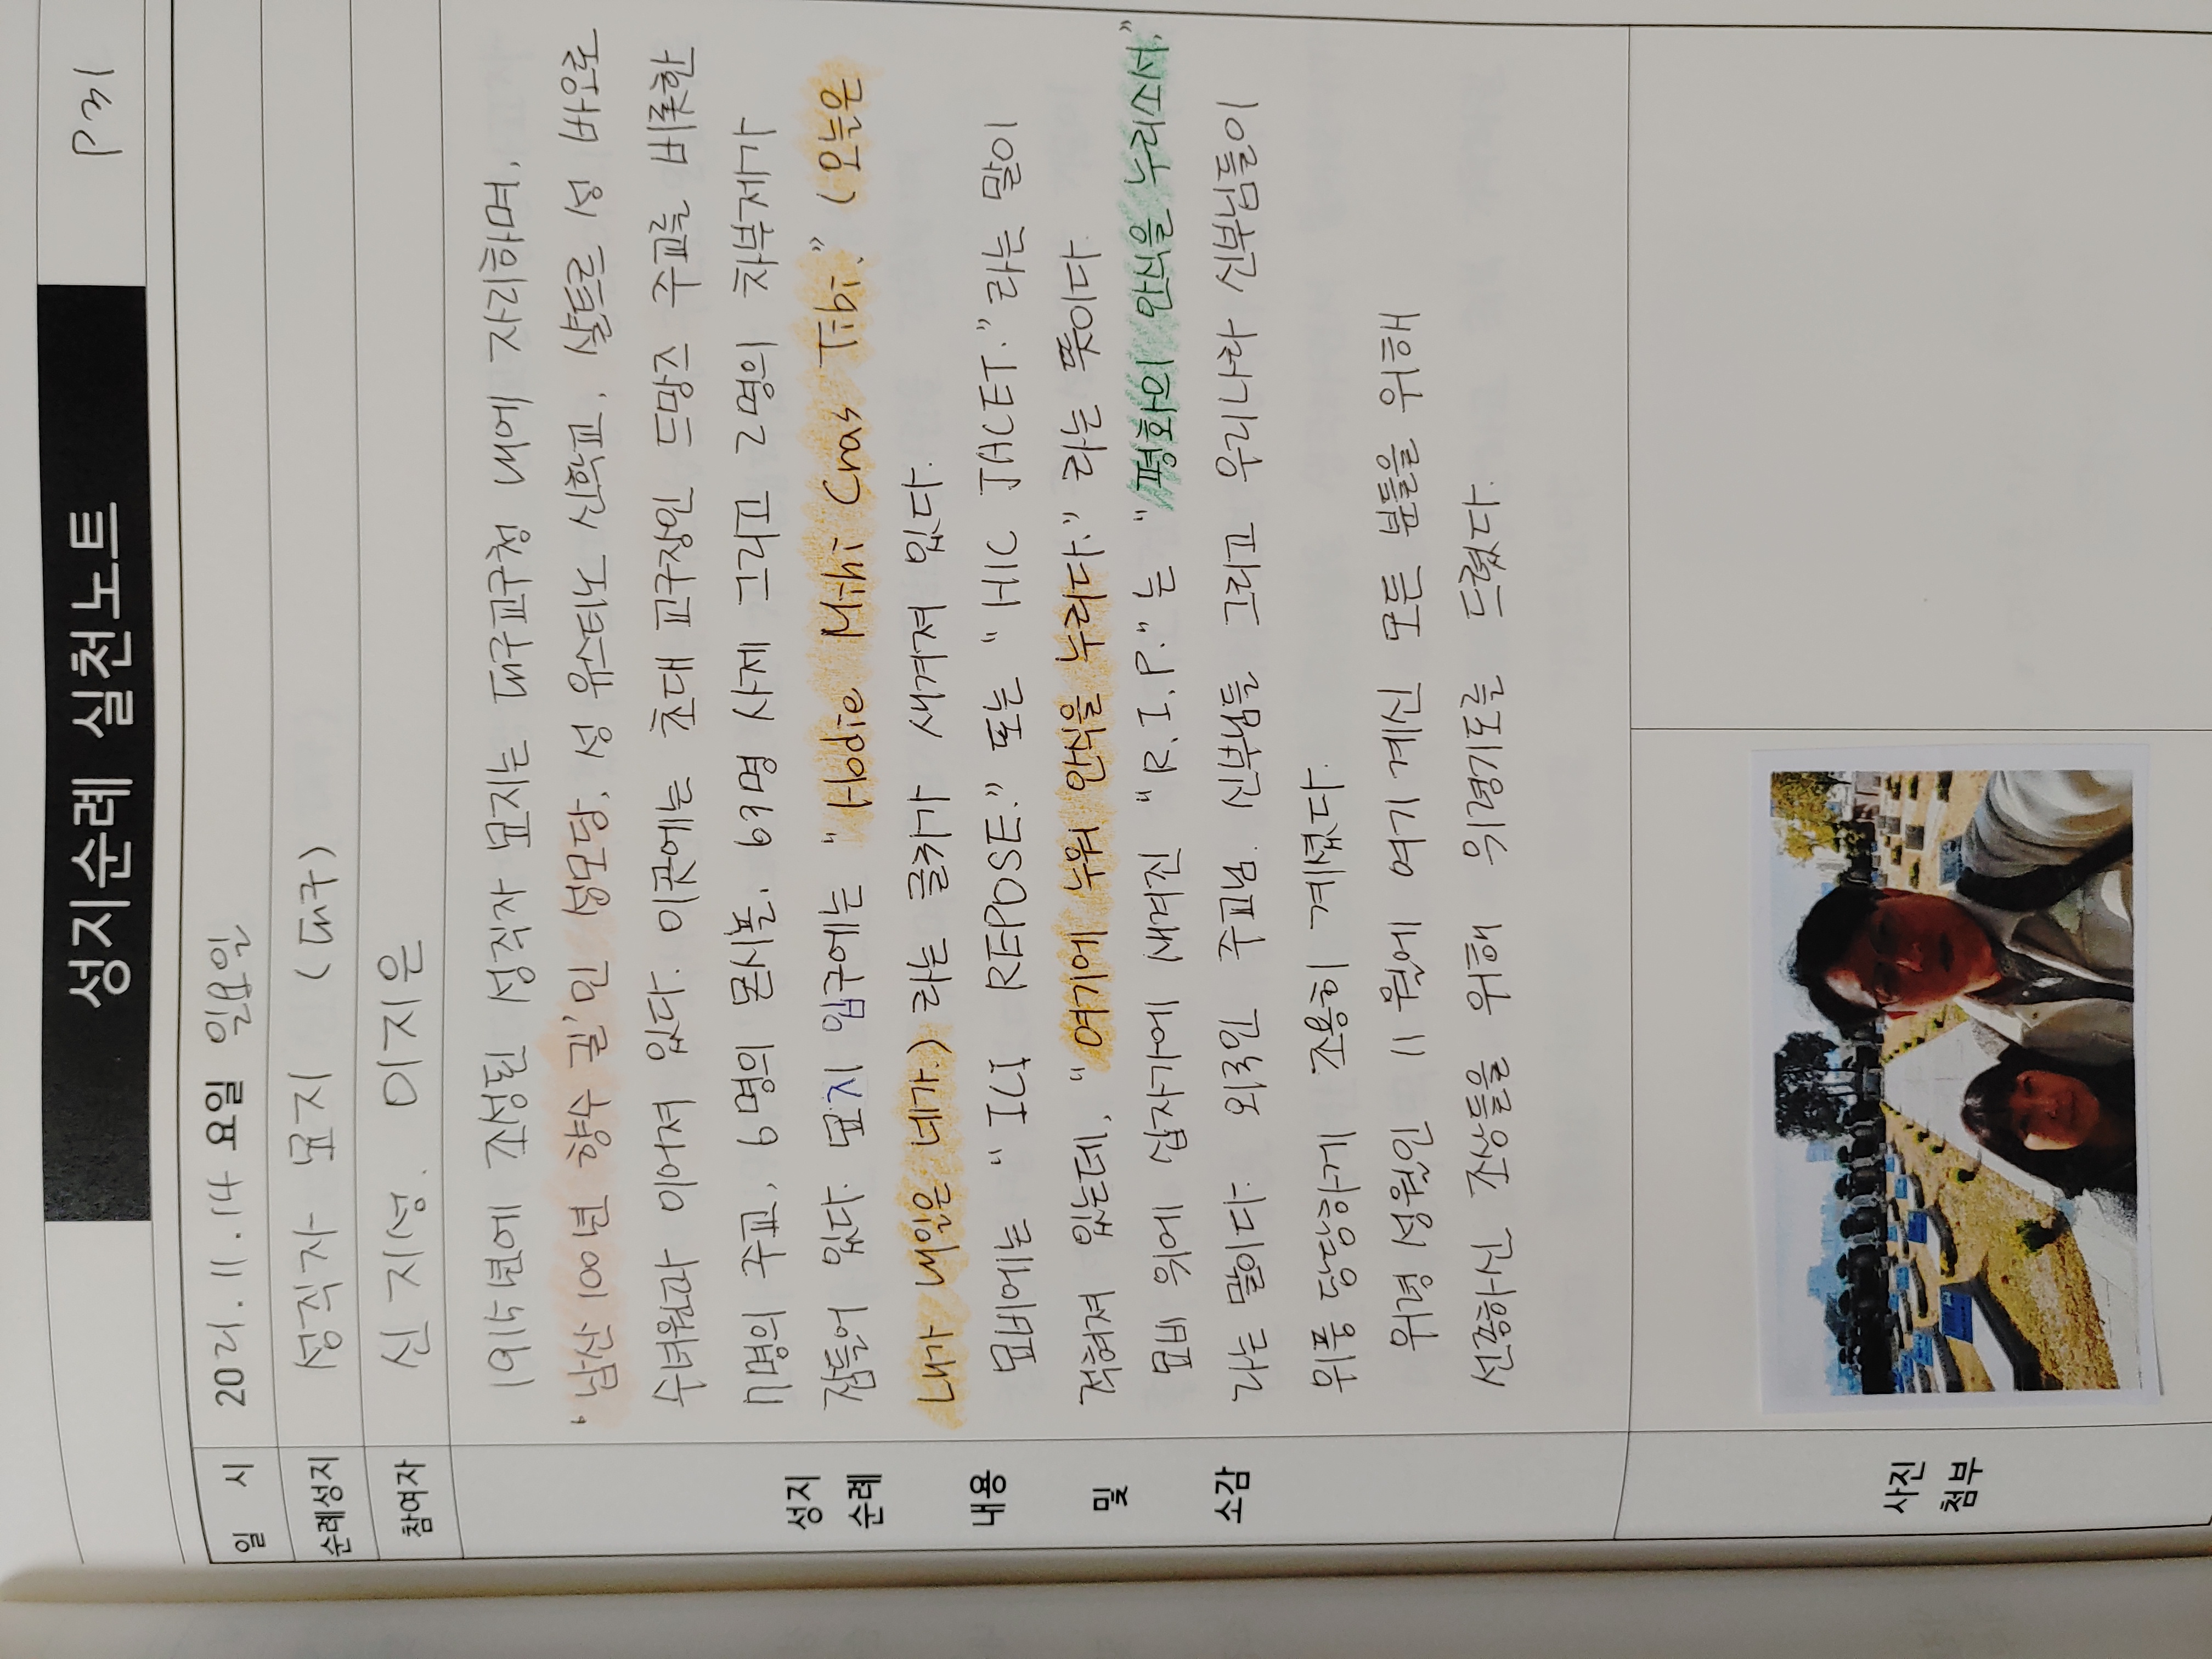 성지순례 실천노트
P 31
일 시 2021. 11. 14 요일 일요일
순례성지 성직자 묘지 (대구)
참여자 신지성. 이지은
성지 순례 내용 및 소감
1915년에 조성된 성직자 묘지는 대구교구청 내에 자리하며,
'남산 100년 향수 길'인 성모당, 성 유스티노 신학교, 샬트르 성 바오로
수녀원과 이어져 있다. 이곳에는 초대 교구장인 드망즈 주교를 비롯한
7명의 주교, 6명의 몬시뇰, 63명 사제 그리고 2명의 차부제가
잠들어 있다. 묘지 입구에는 "Hodie Mihi Cras Tibi." (오늘은
내가 내일은 네가.) 라는 글귀가 새겨져 있다.
묘비에는 "ICI REPOSE." 또는 "HIC JACET." 라는 말이
적혀져 있는데, "여기에 누워 안식을 누리다." 라는 뜻이다
묘비 위에 십자가에 새겨진 "R.I.P."는 "평화의 안식을 누리소서."
라는 말이다. 외국인 주교님. 신부님들 그리고 우리나라 신부님들이
위풍당당하게 조용히 계셨다.
위령 성월인 11월에 여기 계신 모든 분들을 위해
선종하신 조상들을 위해 위령기도를 드렸다.
사진 첨부